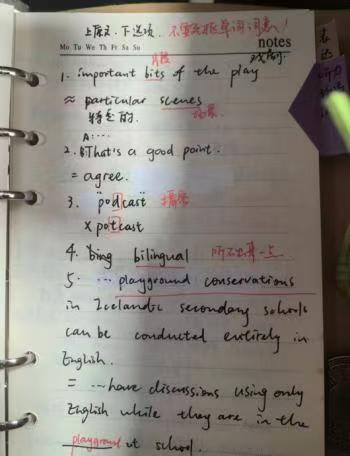 上原文,下选项. 不要无框单词词义!
Mo Tu We Th Fr Sa Su
notes
片段
1. important bits of the play
戏剧
≈ particular scenes
特定的. 场景.
A:...
2. B: That's a good point.
= agree.
3. "podcast" 播客
x potcast
4. bing bilingual 听不出第一点
5. ... playground conservations
in Icelandic secondary schools
can be conducted entirely in
English.
= ... have discussions using only
English while they are in the
playground at school.
表
达
听力